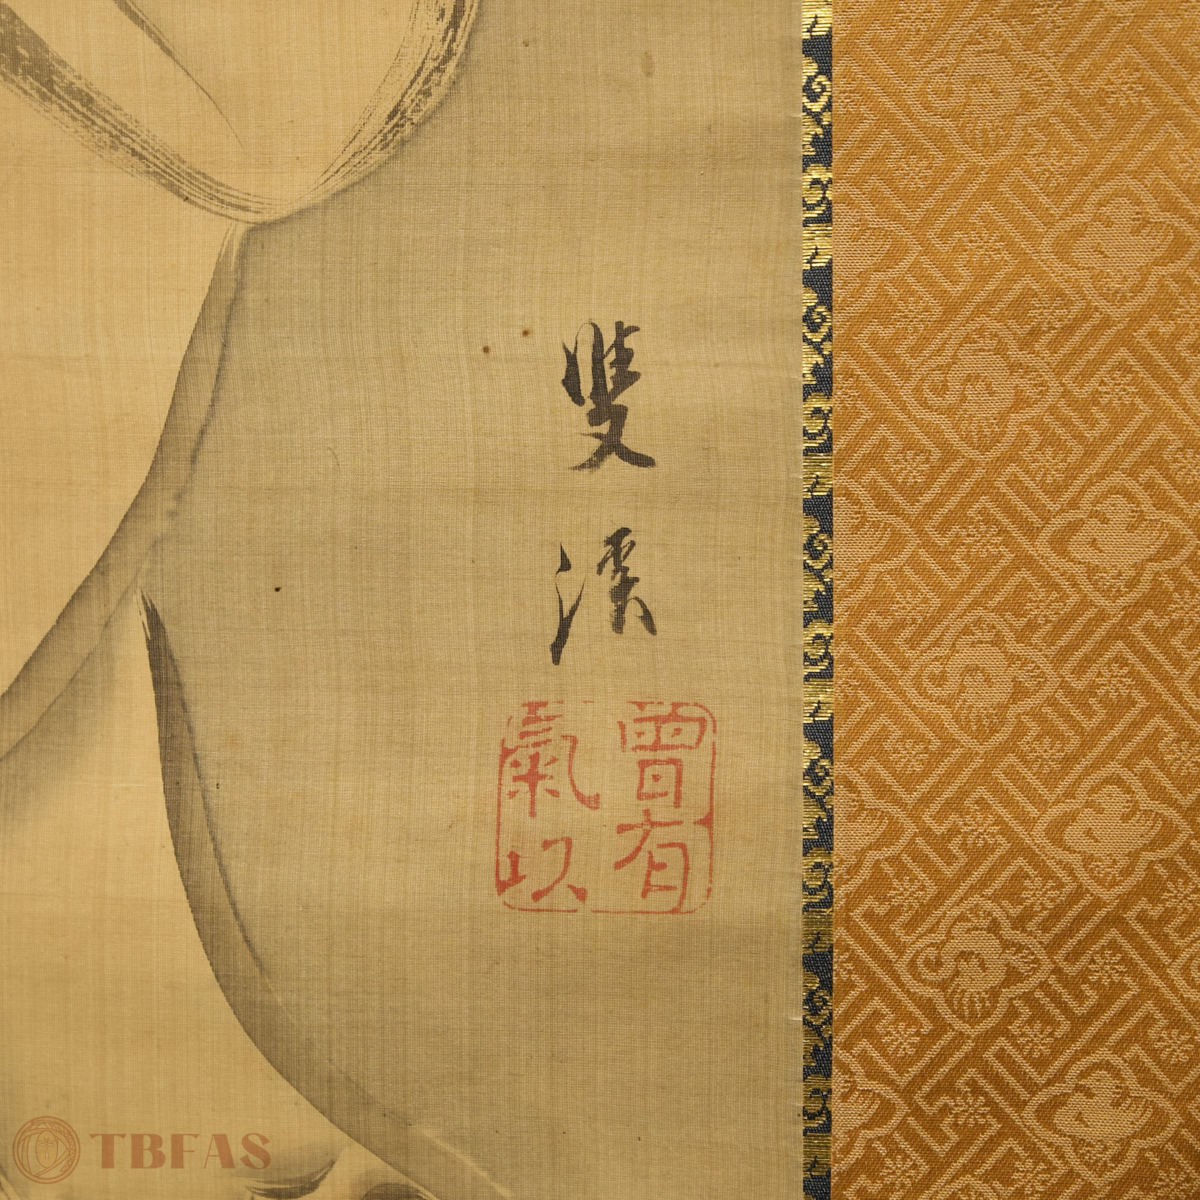 雙
溪
曾有
氣以
TBFAS